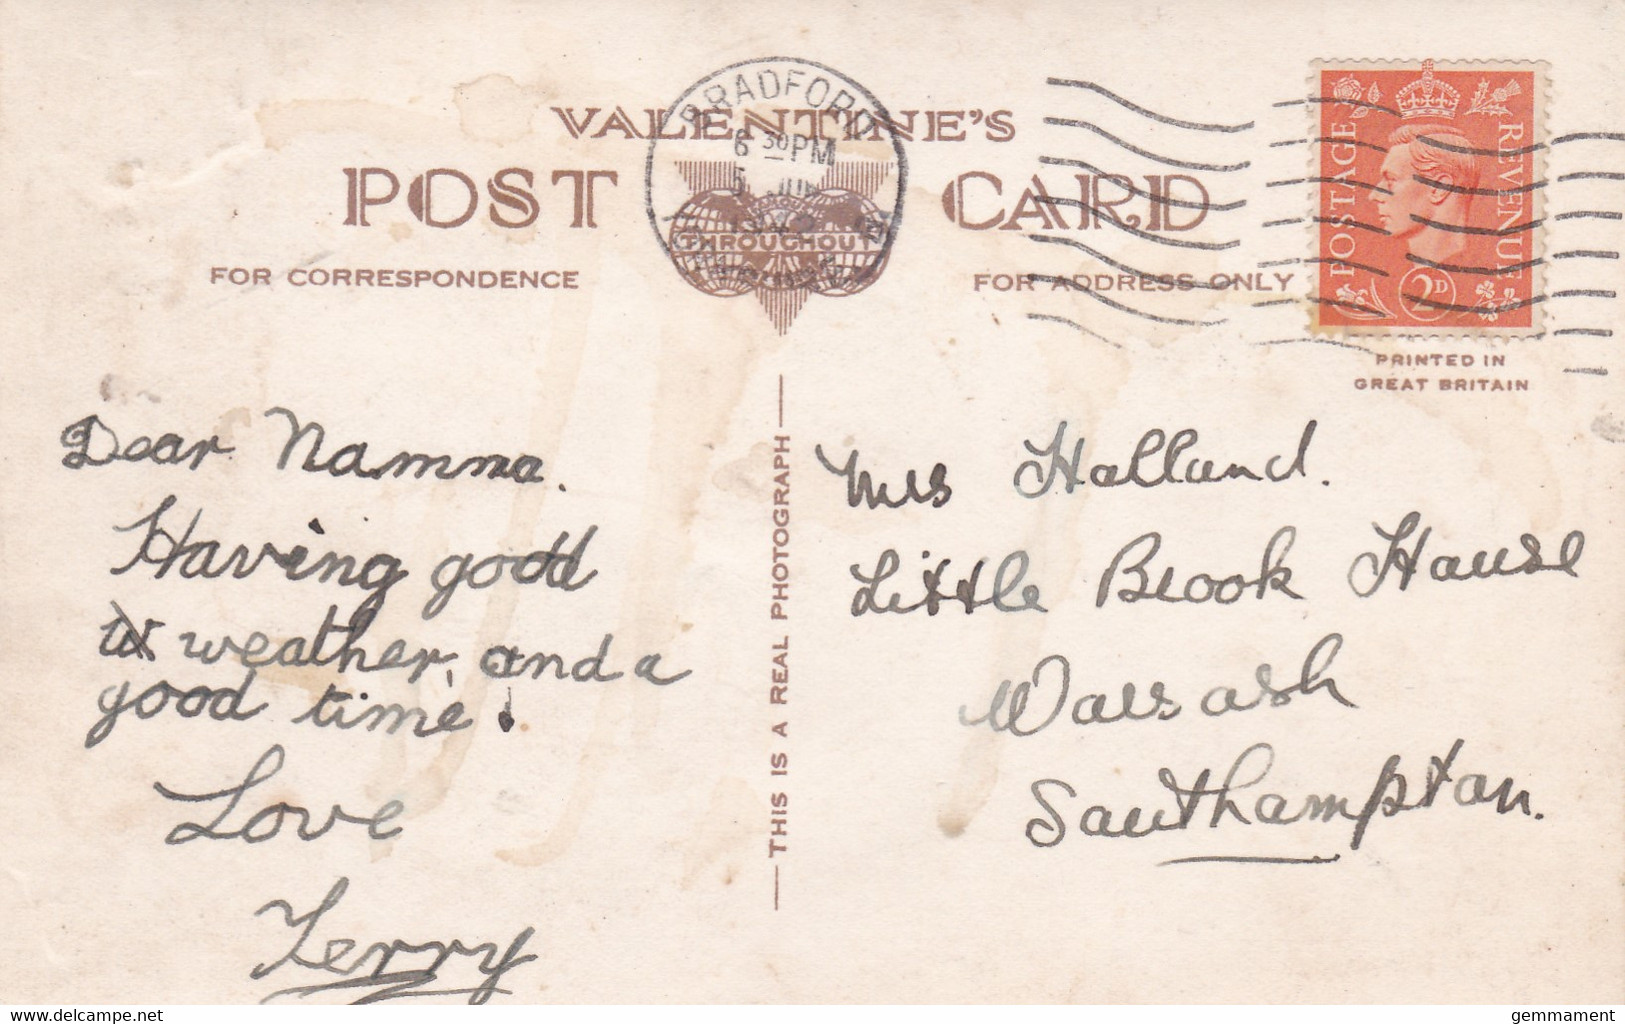 VALENTINE'S
POST CARD
FOR CORRESPONDENCE
FOR ADDRESS ONLY
BRADFORD
6 30 PM
5
THROUGHOUT
POSTAGE
REVENUE
2D
PRINTED IN
GREAT BRITAIN
THIS IS A REAL PHOTOGRAPH
Dear Namma.
Having good
weather, and a
good time.
Love
Terry
Mrs Holland.
Little Brook House
Warsash
Southampton.
delcampe.net
gemmament